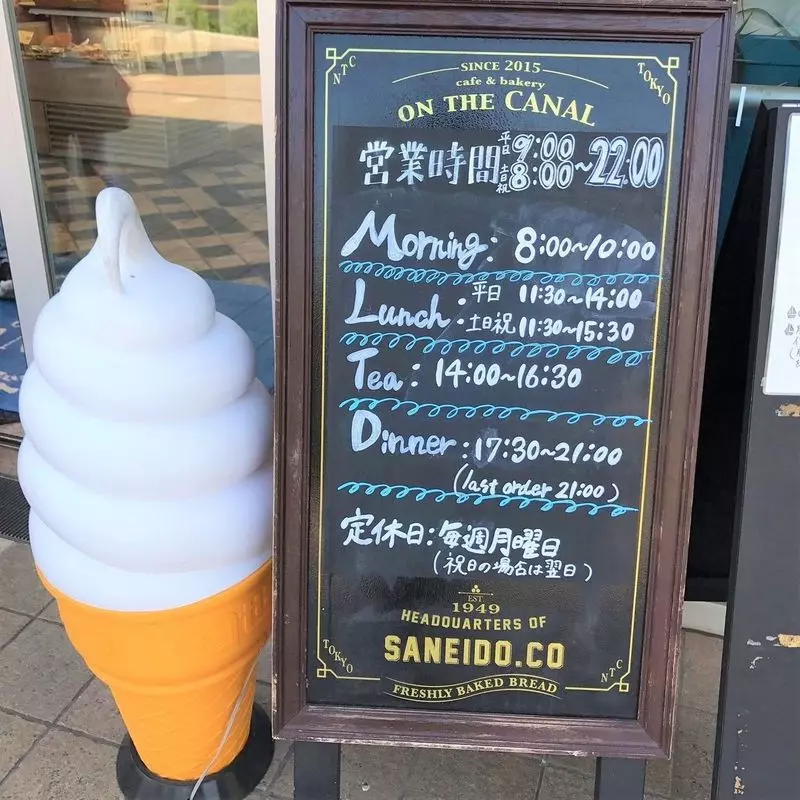 NTC
SINCE 2015
TOKYO
cafe & bakery
ON THE CANAL
営業時間 平日 9:00 土日祝 8:00 ~22:00
Morning: 8:00~10:00
Lunch ・平日 11:30~14:00
・土日祝 11:30~15:30
Tea: 14:00~16:30
Dinner: 17:30~21:00
(last order 21:00)
定休日: 毎週月曜日
(祝日の場合は翌日)
EST
1949
HEADQUARTERS OF
SANEIDO.CO
TOKYO
FRESHLY BAKED BREAD
NTC